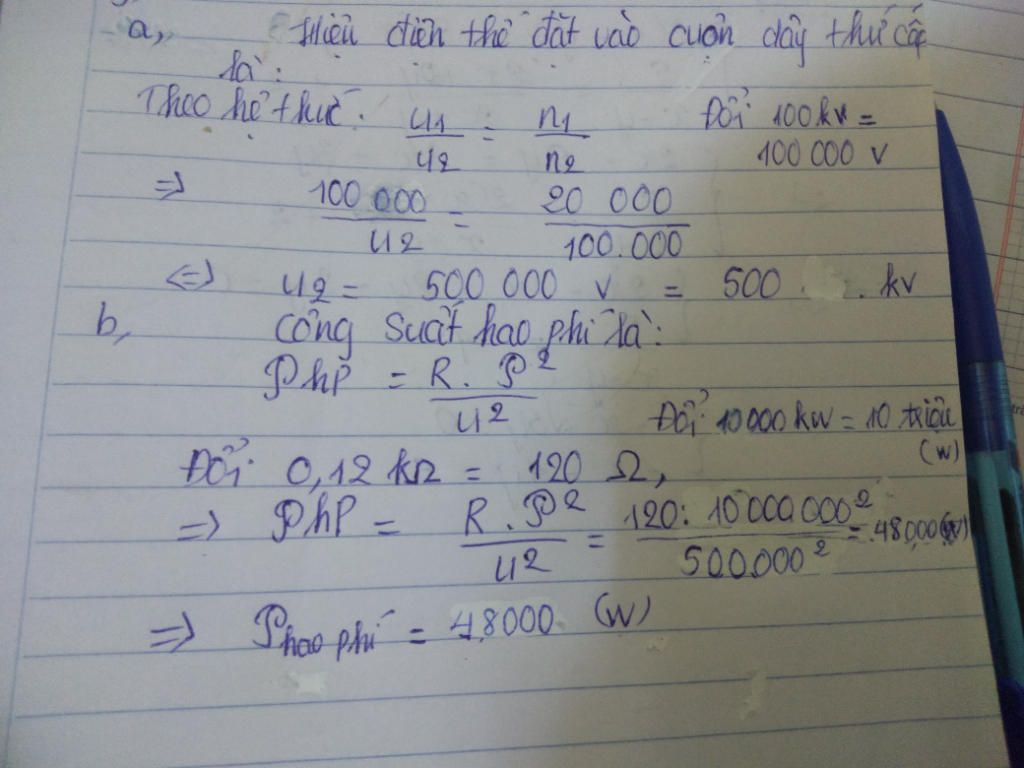 a, Hiệu điện thế đặt vào cuộn dây thứ cấp
là:
Theo hệ thức: U1/U2 = n1/n2 Đổi 100 kv =
100 000 v
=> 100 000/U2 = 20 000/100.000
<=> U2 = 500 000 v = 500 . kv
b, Công suất hao phí là:
Php = R . P²/U²
Đổi: 10 000 kw = 10 triệu
(w)
Đổi: 0,12 kΩ = 120 Ω,
=> Php = R . P²/U² = 120: 10 000 000²/500.000² = 48000(w)
=> P hao phí = 48000 (W)